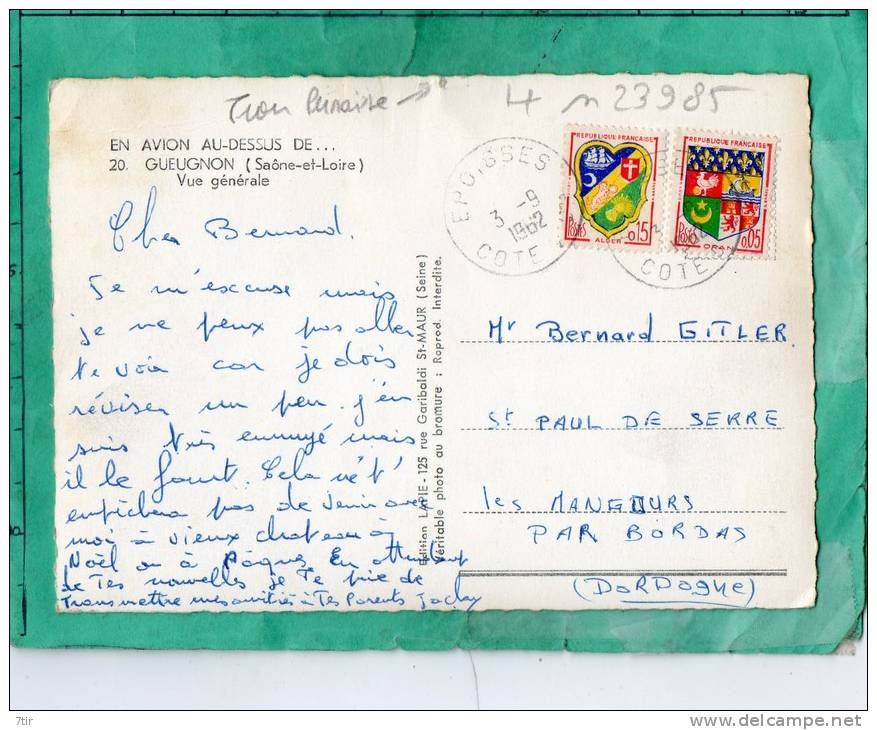 Trou Punaise → 4 n 23985
EN AVION AU-DESSUS DE...
20. GUEUGNON (Saône-et-Loire)
Vue générale
Cher Bernard.
Je m'excuse mais
je ne peux pas aller
te voir car je dois
réviser un peu. J'en
suis très ennuyé mais
il le faut. Cela ne t'
empêchera pas de venir avec
moi à vieux chateau à
Noël ou à Pâques En attendant
de Tes nouvelles je Te prie de
Transmettre mes amitiés à Tes Parents
Edition LAPIE - 125 rue Garibaldi St-MAUR (Seine)
Véritable photo au bromure : Reprod. Interdite.
EPOISSES
3 - 9
1962
COTE
REPUBLIQUE FRANÇAISE
Postes
0,15
ALGER
REPUBLIQUE FRANÇAISE
Postes
0,05
ORAN
COTE
Mr Bernard GITLER
St PAUL DE SERRE
les MANGOURS
PAR BORDAS
(DORDOGNE)
7tir
www.delcampe.net